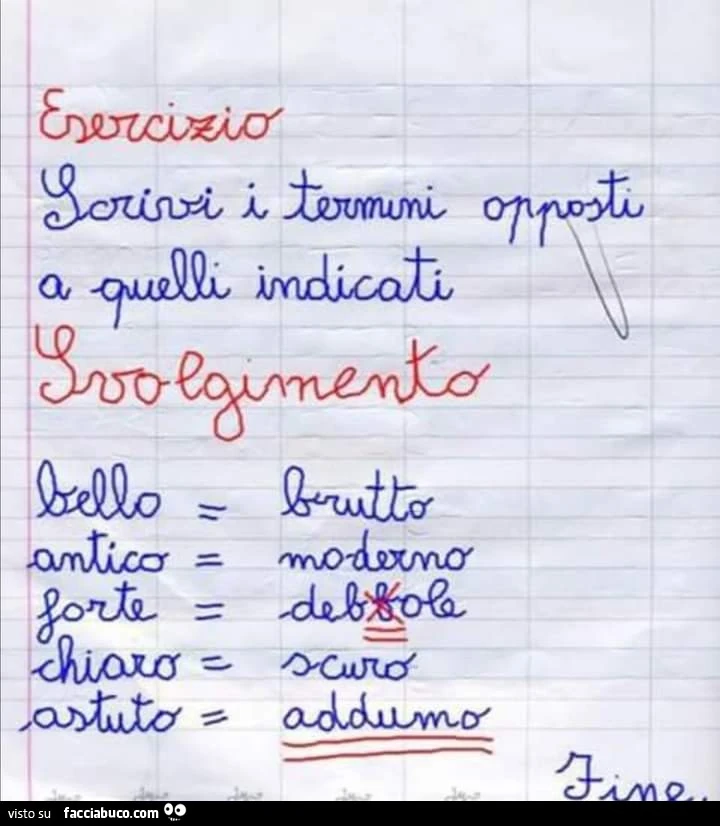 Esercizio
Scrivi i termini opposti
a quelli indicati
Svolgimento
bello = brutto
antico = moderno
forte = debbole
chiaro = scuro
astuto = addumo
Fine.
visto su facciabuco.com